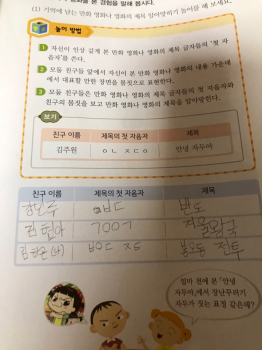 (1) 기억에 남는 만화 영화나 영화의 제목 알아맞히기 놀이를 해 보세요.
놀이 방법
1 자신이 인상 깊게 본 만화 영화나 영화의 제목 글자들의 '첫 자
음자'를 쓴다.
2 모둠 친구들 앞에서 자신이 본 만화 영화나 영화의 내용 가운데
에서 대표할 만한 장면을 몸짓으로 표현한다.
3 모둠 친구들은 만화 영화나 영화의 제목 글자들의 첫 자음자와
친구의 몸짓을 보고 만화 영화나 영화의 제목을 알아맞힌다.
보기
친구 이름 제목의 첫 자음자 제목
김주원 ㅇㄴ ㅈㄷㅇ 안녕 자두야
친구 이름 제목의 첫 자음자 제목
반도
겨울왕국
ㅂㅇㄷ ㅈㅌ 봉오동 전투
얼마 전에 본 「안녕
자두야」에서 장난꾸러기
자두가 짓는 표정 같은데?